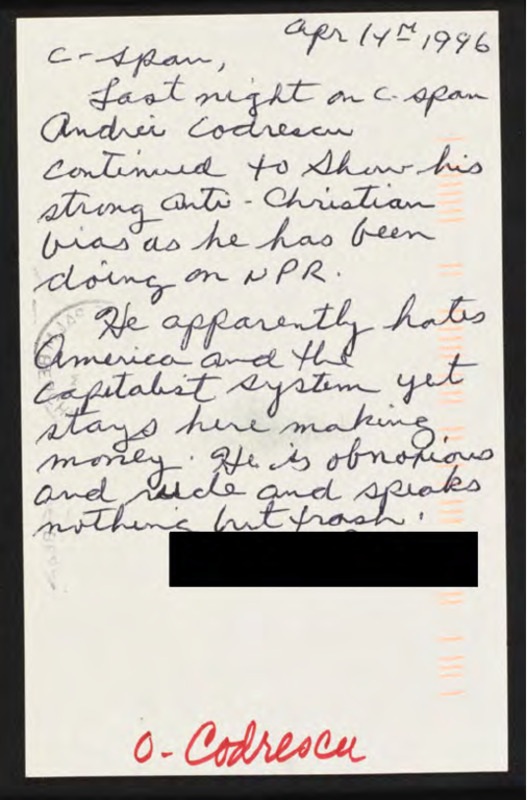 Apr 14th, 1996
C-Span,
Last night on C-Span
Andrei Codrescu
continued to show his
strong anti-Christian
bias as he has been
doing on NPR.
He apparently hates
America and the
capitalist system yet
stays here making
money. He is obnoxious
and rude and speaks
nothing but trash.
O-Codrescu